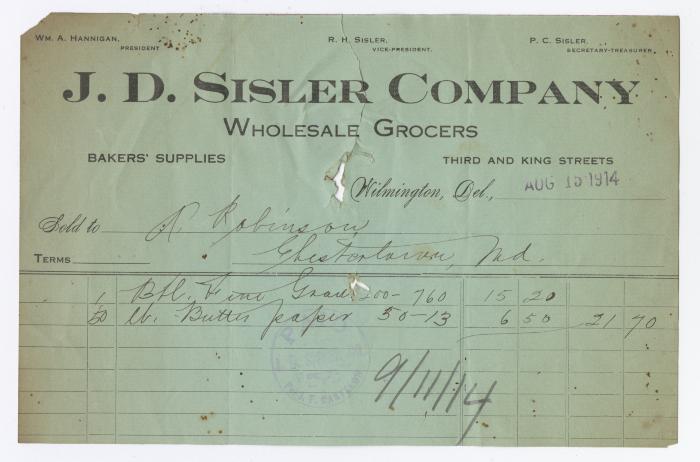 WM. A. HANNIGAN, PRESIDENT
R. H. SISLER, VICE-PRESIDENT.
P. C. SISLER, SECRETARY-TREASURER
J. D. SISLER COMPANY
WHOLESALE GROCERS
BAKERS' SUPPLIES THIRD AND KING STREETS
Wilmington, Del., AUG 15 1914
Sold to R. Robinson
Chestertown, Md.
TERMS
1 Bbl. Fine Gran. 200- 760 15 20
50 lb. Butter paper 50-13 6 50 21 70
9/11/14